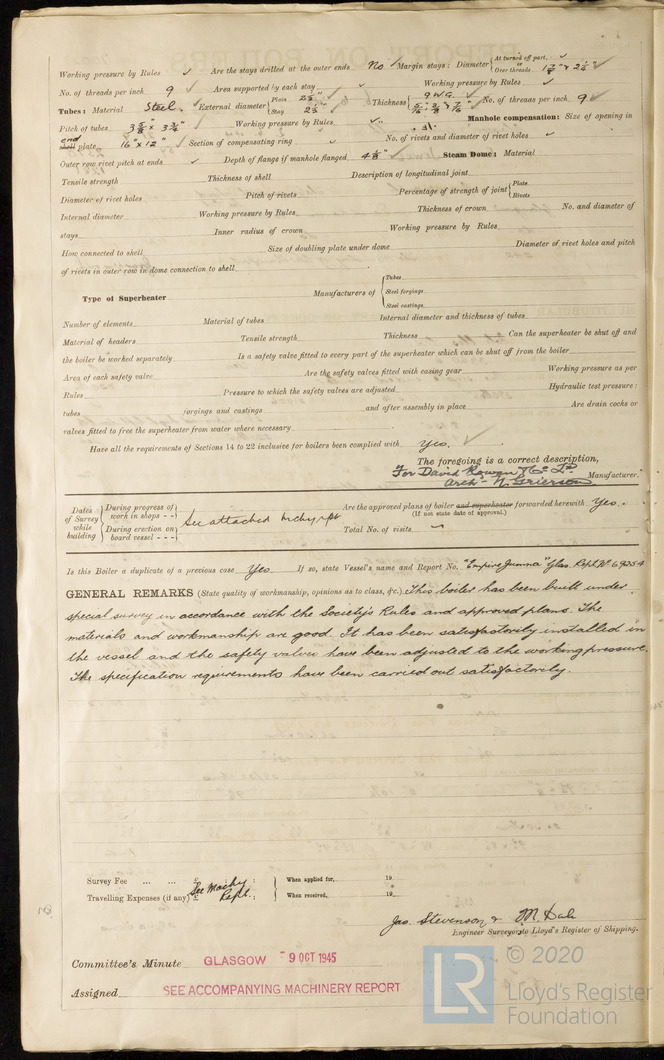 Working pressure by Rules ✓ Are the stays drilled at the outer ends No Margin stays: Diameter { At turned off part, ✓ or Over threads 1 7/8" & 2 1/4" ✓
No. of threads per inch 9 ✓ Area supported by each stay ✓ Working pressure by Rules ✓
Tubes: Material Steel. ✓ External diameter { Plain 2 1/2" Stay 2 1/2" ✓ Thickness { 9 W.G. ✓ 5/16", 3/8" & 7/16" ✓ No. of threads per inch 9 ✓
Pitch of tubes 3 5/8" x 3 3/4" ✓ Working pressure by Rules ✓ Manhole compensation: Size of opening in
end shell plate 16" x 12" ✓ Section of compensating ring ✓ No. of rivets and diameter of rivet holes ✓
Outer row rivet pitch at ends ✓ Depth of flange if manhole flanged 4 1/8" ✓ Steam Dome: Material
Tensile strength Thickness of shell Description of longitudinal joint
Diameter of rivet holes Pitch of rivets Percentage of strength of joint { Plate Rivets
Internal diameter Working pressure by Rules Thickness of crown No. and diameter of
stays Inner radius of crown Working pressure by Rules
How connected to shell Size of doubling plate under dome Diameter of rivet holes and pitch
of rivets in outer row in dome connection to shell
Type of Superheater Manufacturers of { Tubes Steel forgings Steel castings
Number of elements Material of tubes Internal diameter and thickness of tubes
Material of headers Tensile strength Thickness Can the superheater be shut off and
the boiler be worked separately Is a safety valve fitted to every part of the superheater which can be shut off from the boiler
Area of each safety valve Are the safety valves fitted with easing gear Working pressure as per
Rules Pressure to which the safety valves are adjusted Hydraulic test pressure:
tubes forgings and castings and after assembly in place Are drain cocks or
valves fitted to free the superheater from water where necessary
Have all the requirements of Sections 14 to 22 inclusive for boilers been complied with Yes. ✓
The foregoing is a correct description,
For David Rowan & Co Ld.
Arch. N. Grierson Manufacturer.
Dates of Survey while building { During progress of work in shops - - During erection on board vessel - - - See attached Mchy rpt
Are the approved plans of boiler and superheater forwarded herewith Yes.
(If not state date of approval.)
Total No. of visits
Is this Boiler a duplicate of a previous case Yes If so, state Vessel's name and Report No. "Empire Jumna" Glas. Rept. No 69254
GENERAL REMARKS (State quality of workmanship, opinions as to class, &c.) This boiler has been built under
special survey in accordance with the Society's Rules and approved plans. The
materials and workmanship are good. It has been satisfactorily installed in
the vessel and the safety valves have been adjusted to the working pressure.
The specification requirements have been carried out satisfactorily.
Survey Fee ... ... £ : : When applied for, 19
See Machy Rept.
Travelling Expenses (if any) £ : : When received, 19
Jas. Stevenson & M. Dale
Engineer Surveyor to Lloyd's Register of Shipping.
Committee's Minute GLASGOW - 9 OCT 1945
Assigned SEE ACCOMPANYING MACHINERY REPORT
LR © 2020
Lloyd's Register
Foundation